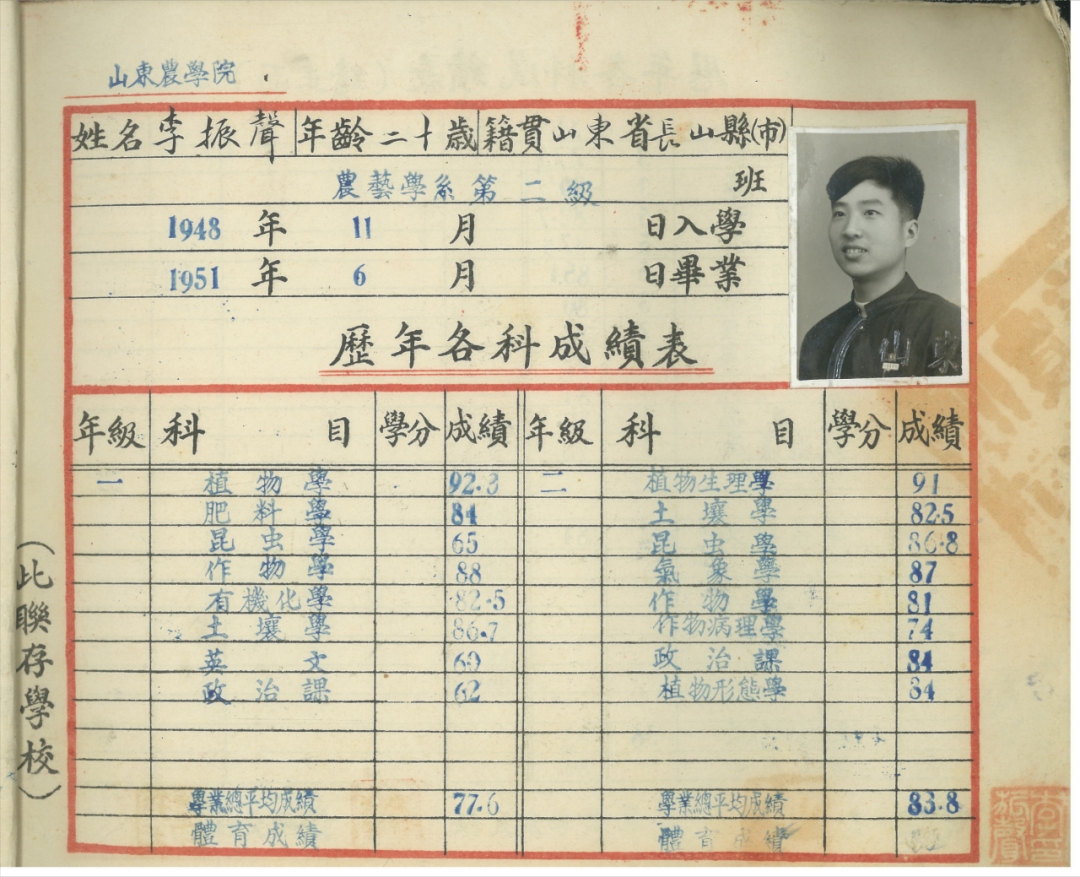 山東農學院
姓名李振聲 年齡二十歲 籍貫山東省長山縣(市)
農藝學系第二級 班
1948年11月 日入學
1951年6月 日畢業
歷年各科成績表
年級 科目 學分 成績 年級 科目 學分 成績
一 植物學 92.3 二 植物生理學 91
肥料學 84 土壤學 82.5
昆虫學 65 昆虫學 86.8
作物學 88 氣象學 87
有機化學 82.5 作物學 81
土壤學 86.7 作物病理學 74
英文 60 政治課 84
政治課 62 植物形態學 84
學業總平均成績 77.6 學業總平均成績 83.8
體育成績 體育成績
(此聯存學校)
山東
李振聲